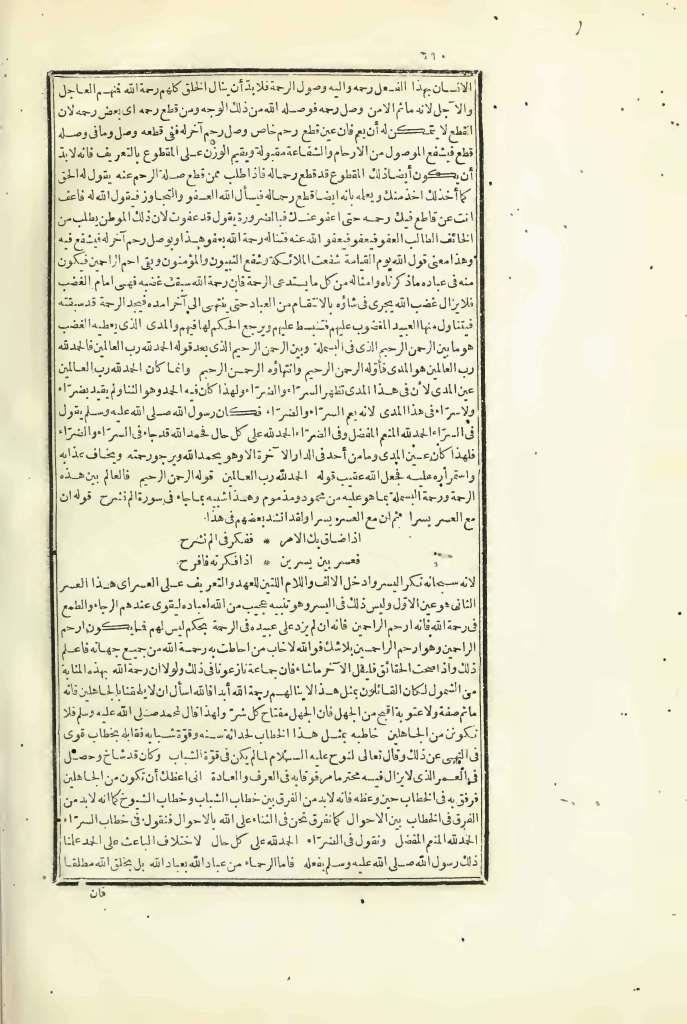 ٦٩٠
الانسان بهذا الفعل رحمه واليه وصول الرحمة فلا بدّ أن ينال الخلق كلهم رحمة الله فمنهم العاجل
والآجل لانه ما ثم الا من وصل رحمه فوصله الله من ذلك الوجه ومن قطع رحمه اى بعض رحمه لان
القطع لا يتمكن له أن يعم فان عين قطع رحم خاص وصل رحم آخر له ففى قطعه وصل وما فى وصله
قطع فيشفع الموصول من الارحام والشفاعة مقبولة ويقيم الوزن على المقطوع بالتعريف فانه لا بدّ
أن يكون أيضا ذلك المقطوع قد قطع رحما له فاذا طلب ممن قطع صلة الرحم عنه يقول له الحق
كما أخذ لك اخذ منك ويعلمه بانه ايضا قطع رحما له فيسأل الله العفو والتجاوز فيقول الله له فاعف
انت عن قاطع فيك رحمه حتى اعفو عنك فبالضرورة يقول قد عفوت لان ذلك الموطن يطلب من
الخائف الطالب العفو فيعفو فيعفو الله عنه فتناله رحمة الله بعفو هذا ويوصل رحم آخر له فيشفع فيه
وهذا معنى قول الله يوم القيامة شفعت الملائكة وشفع النبيون والمؤمنون وبقى ارحم الراحمين فيكون
منه فى عباده ما ذكرناه وامثاله من كل ما يستدعى الرحمة فان رحمة الله سبقت غضبه فهى امام الغضب
فلا يزال غضب الله يجرى فى شاؤه بالانتقام من العباد حتى ينتهى الى آخر امده فيجد الرحمة قد سبقته
فيتناول منها العبيد المغضوب عليهم فتنبسط عليهم ويرجع الحكم لها فيهم والمدى الذى يعطيه الغضب
هو ما بين الرحمن الرحيم الذى فى البسملة وبين الرحمن الرحيم الذى بعد قوله الحمد لله رب العالمين فالحمد لله
رب العالمين هو المدى فأوله الرحمن الرحيم وانتهاؤه الرحمن الرحيم وانما كان الحمد لله رب العالمين
عين المدى لان فى هذا المدى تظهر السراء والضراء ولهذا كان فيه الحمد وهو الثناء ولم يقيد بضراء
ولا سراء فى هذا المدى لانه يعم السراء والضراء فكان رسول الله صلى الله عليه وسلم يقول
فى السراء الحمد لله المنعم المفضل وفى الضراء الحمد لله على كل حال فحمد الله قد جاء فى السراء والضراء
فلهذا كان عين المدى وما من أحد فى الدار الآخرة الا وهو يحمد الله ويرجو رحمته ويخاف عذابه
واستمراره عليه فجعل الله عقيب قوله الحمد لله رب العالمين قوله الرحمن الرحيم فالعالم بين هذه
الرحمة ورحمة البسملة بما هو عليه من محمود ومذموم وهذا شبيه بما جاء فى سورة الم نشرح قوله ان
مع العسر يسرا ثم ان مع العسر يسرا ولقد انشد بعضهم فى هذا.
اذا ضاق بك الامر * ففكر فى الم نشرح
فعسر بين يسرين * اذا فكرته فافرح
لانه سبحانه نكر اليسر وادخل الالف واللام اللتين للعهد والتعريف على العسر اى هذا العسر
الثانى هو عين الاول وليس ذلك فى اليسر وهو تنبيه عجيب من الله لعباده ليقوى عندهم الرجاء والطمع
فى رحمة الله فانه ارحم الراحمين فانه ان لم يزد على عبيده فى الرحمة بحكم ليس لهم فما يكون ارحم
الراحمين وهو ارحم الراحمين بلا شك فو الله لا خاب من احاطت به رحمة الله من جميع جهاته فاعلم
ذلك واذا صحت الحقائق فليقل الآخر ما شاء فان جماعة نازعونا فى ذلك ولولا ان رحمة الله بهذه المثابة
من الشمول لكان القائلون بمثل هذا لا ينالهم رحمة الله أبدا فالله اسأل ان لا يلحقنا بالجاهلين فانه
ما ثم صفة ولا عقوبة اقبح من الجهل فان الجهل مفتاح كل شر ولهذا قال لمحمد صلى الله عليه وسلم فلا
تكونن من الجاهلين خاطبه بمثل هذا الخطاب لحداثة سنه وقوة شبابه فقابله بخطاب قوى
فى النهى عن ذلك وقال تعالى لنوح عليه السلام لما لم يكن فى قوة الشباب وكان قد شاخ وحصل
فى العمر الذى لا يزال فيه محترما مرفوقا به فى العرف والعادة انى اعظك أن تكون من الجاهلين
فرفق به فى الخطاب حين وعظه فانه لا بد من الفرق بين خطاب الشباب وخطاب الشيوخ كما انه لا بد من
الفرق فى الخطاب بين الاحوال كما نفرق نحن فى الثناء على الله بالاحوال فنقول فى خطاب السراء
الحمد لله المنعم المفضل ونقول فى الضراء الحمد لله على كل حال لاختلاف الباعث على الحمد علمنا
ذلك رسول الله صلى الله عليه وسلم بفعله فاما الرحماء من عباد الله بعباد الله بل بخلق الله مطلقا
فان